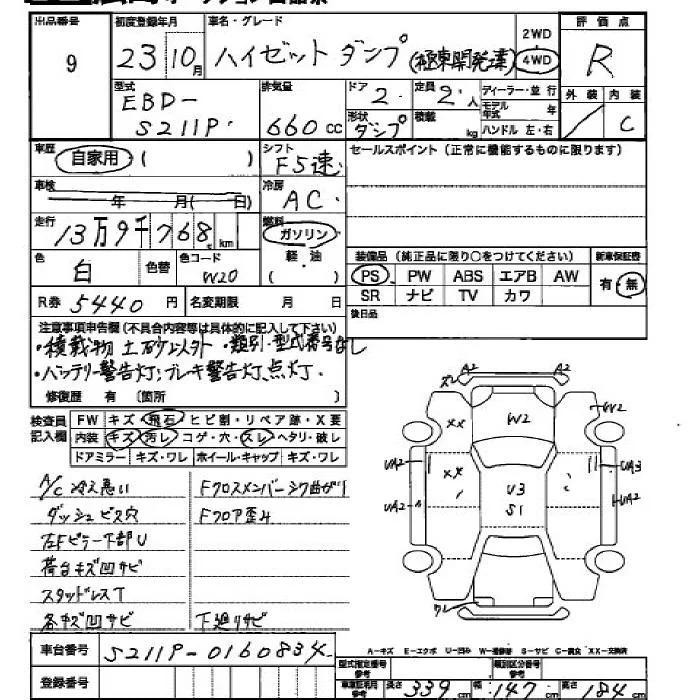 出品番号 9
初度登録年月 23 10月
車名・グレード ハイゼットダンプ(極東開発製)
2WD 4WD
評価点 R
型式 EBD-S211P
排気量 660cc
ドア 2
定員 2人
ディーラー・並行
モデル年式 年
ハンドル 左・右
形状 ダンプ
積載 kg
外装 /
内装 C
車歴 自家用 ( )
シフト F5速
セールスポイント (正常に機能するものに限ります)
車検 年 月( 日)
冷房 AC
走行 13万9千768 km
燃料 ガソリン 軽・油
色 白 色替 色コード W20
装備品 (純正品に限り○をつけてください)
新車保証書 有・無
PS PW ABS エアB AW
SR ナビ TV カワ
R券 5440円 名変期限 月 日
後日品
注意事項申告欄 (不具合内容等は具体的に記入して下さい)
・積載物土砂以外 ・類別・型式番号なし
・バッテリー警告灯、ブレーキ警告灯、点灯.
修復歴 有 〔箇所
検査員記入欄
FW キズ・飛石・ヒビ割・リペア跡・X要
内装 キズ・汚レ・コゲ・穴・スレ・ヘタリ・破レ
ドアミラー キズ・ワレ ホイール・キャップ キズ・ワレ
A/C 冷え悪い
Fクロスメンバーシワ曲がり
ダッシュビス穴
Fフロア歪み
左Fピラー下部U
荷台キズ凹サビ
スタッドレスT
各キズ凹サビ
下廻りサビ
A2 A2
W2 W2
XX
XX
UA2 UA3
UA2 UA2
U3
S1
ワレ
A-キズ E-エクボ U-凹み W-補修跡 S-サビ C-腐食 XX-交換済
車台番号 S211P-0160834
登録番号
型式指定番号 参考
類別区分番号 参考
車検証判用 参考 長さ 339cm 幅 147cm 高さ 184cm